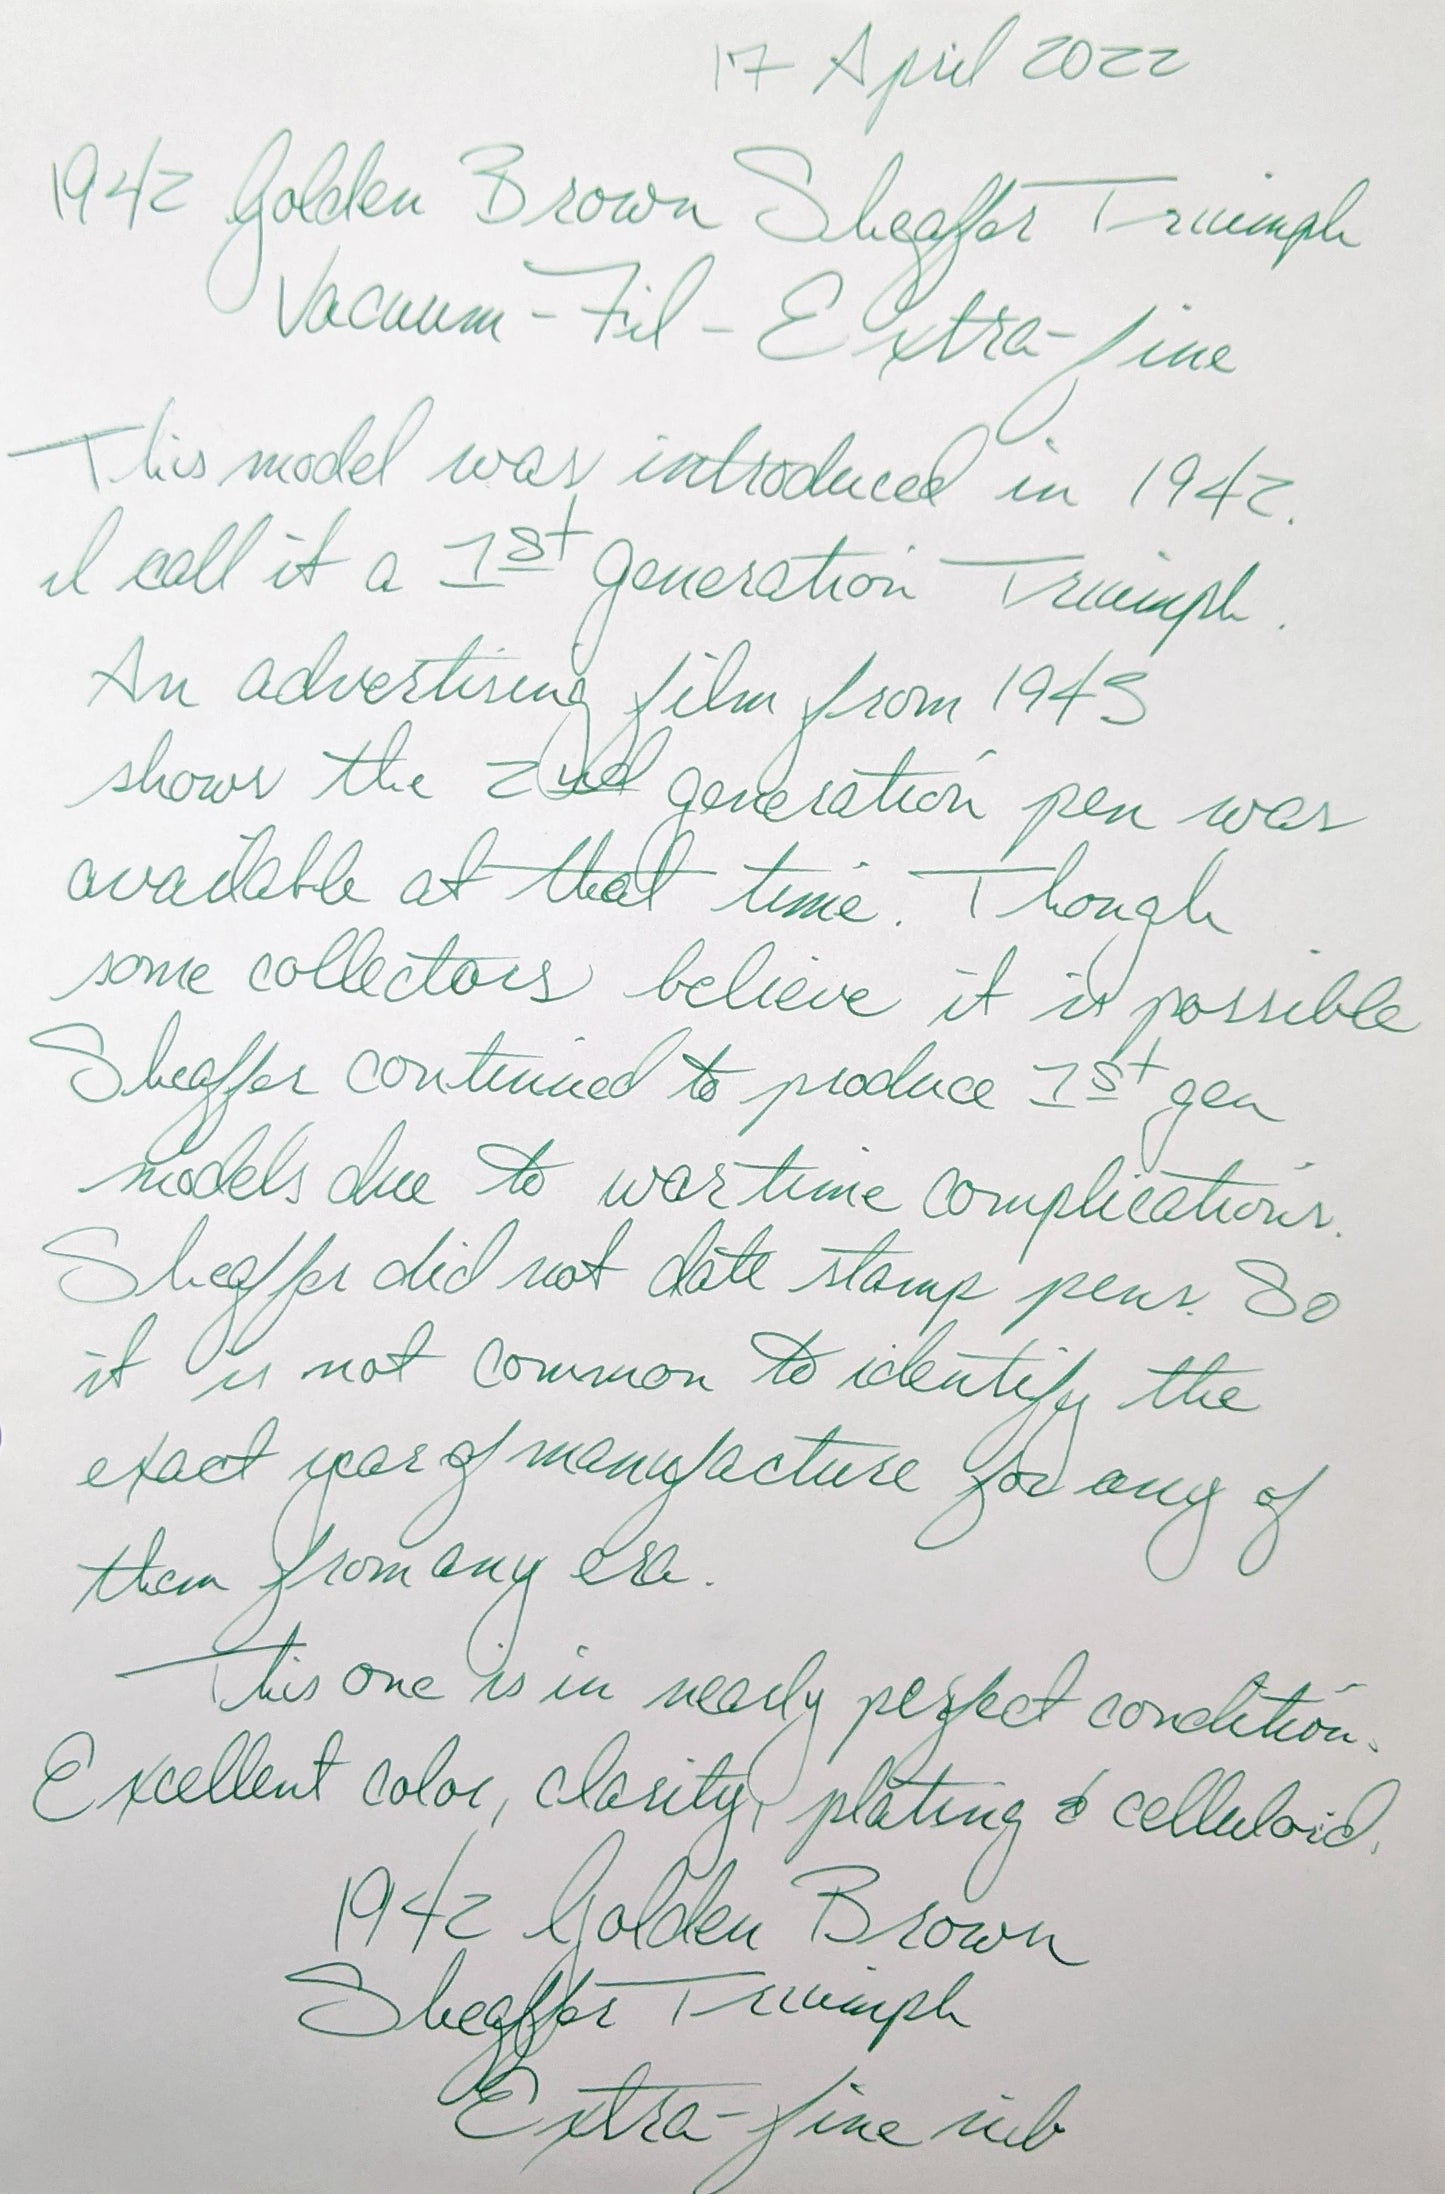 17 April 2022
1942 Golden Brown Sheaffer Triumph
Vacuum-Fil - Extra-fine
This model was introduced in 1942.
I call it a 1st generation Triumph.
An advertising film from 1943
shows the 2nd generation pen was
available at that time. Though
some collectors believe it is possible
Sheaffer continued to produce 1st gen
models due to wartime complications.
Sheaffer did not date stamp pens. So
it is not common to identify the
exact year of manufacture for any of
them from any era.
This one is in nearly perfect condition.
Excellent color, clarity, plating & celluloid.
1942 Golden Brown
Sheaffer Triumph
Extra-fine nib